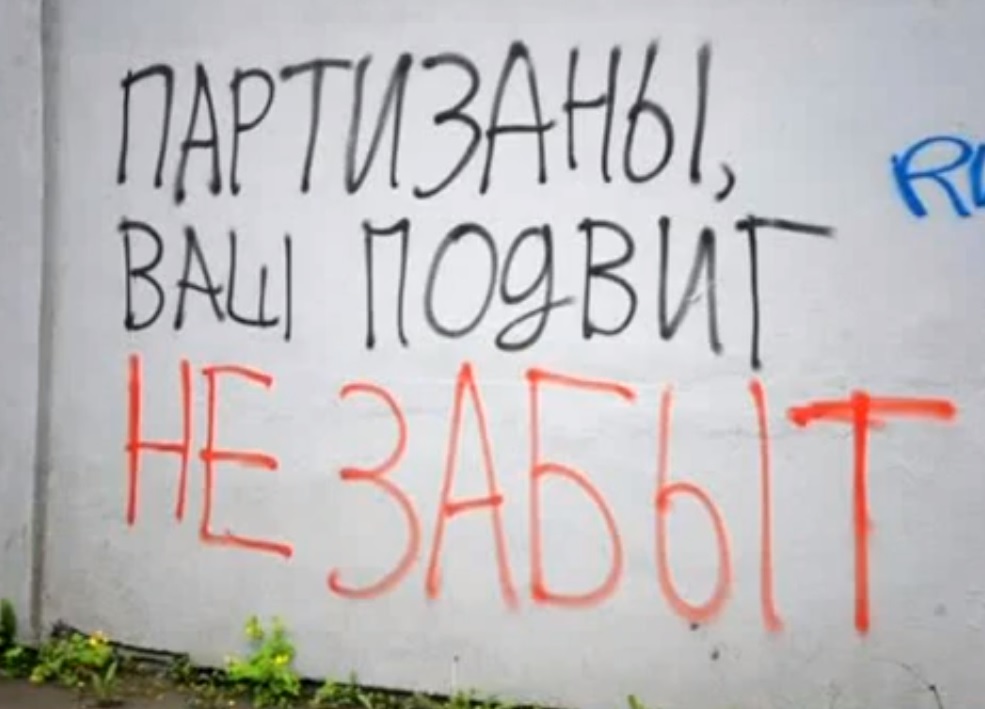 ПАРТИЗАНЫ,
ВАШ ПОДВИГ
НЕ ЗАБЫТ